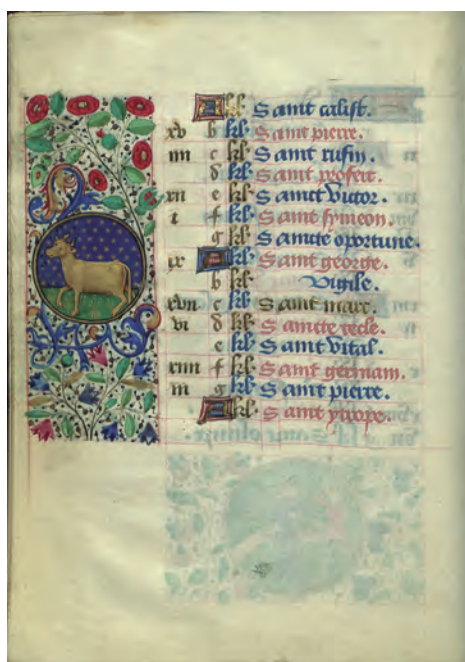 A kl Saint calist.
xv b kl Saint pierre.
iiii c kl Saint rufin.
d kl Saint
xii e kl Sainct Victor.
i f kl Saint symeon.
g kl Saincte oportune.
ix A kl Saint george.
b kl Vigile.
xvii c kl Saint marc.
vi d kl Saincte tecle.
e kl Saint Vital.
xiiii f kl Saint germain.
iii g kl Saint pierre.
A kl Saint ytrope.